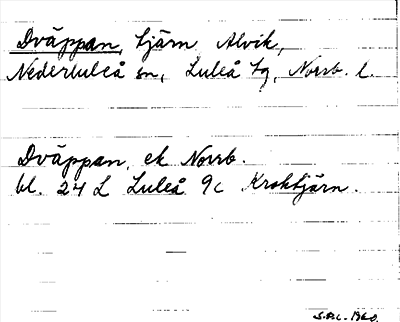 Dväppan, tjärn Alvik,
Nederluleå sn, Luleå tg, Norrb. l.
Dväppan, ek Norrb.
bl. 24 L Luleå 9c Kroktjärn.
1960.